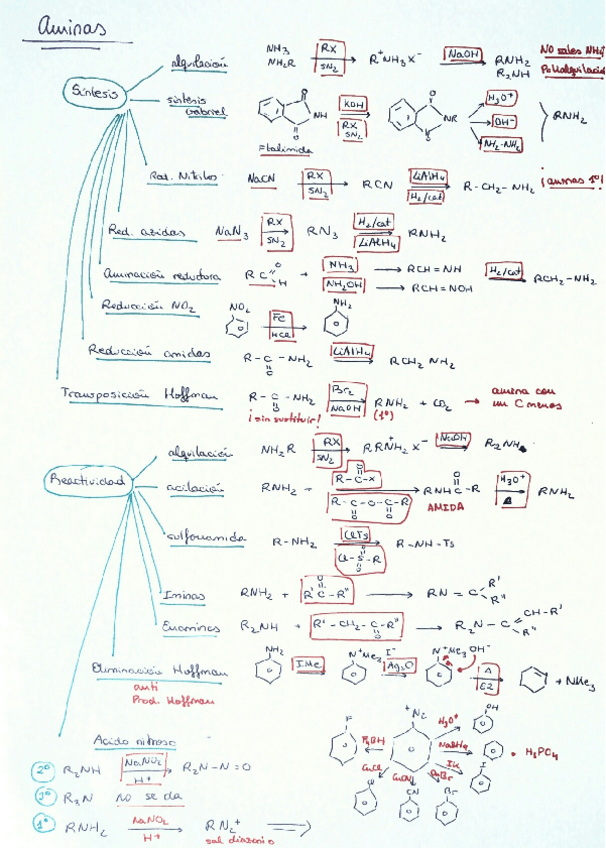 Aminas
Síntesis
alquilación NH3 NH2R RX SN2 R+NH3X- NaOH RNH2 R3NH NO sales NH4+ Polialquilación
síntesis Gabriel O NH O KOH RX SN2 O NR O H3O+ OH- NH2-NH2 RNH2
Ftalimida
Red. Nitrilos NaCN RX SN2 RCN LiAlH4 H2/cat R-CH2-NH2 ¡aminas 1º!
Red. azidas NaN3 RX SN2 RN3 H2/cat LiAlH4 RNH2
Aminación reductora RC O H + NH3 NH2OH RCH=NH RCH=NOH H2/cat RCH2-NH2
Reducción NO2 NO2 Fe HCl NH2
Reducción amidas R-C-NH2 O LiAlH4 RCH2 NH2
Transposición Hoffman R-C-NH2 O Br2 NaOH RNH2 + CO2 amina con un C menos
¡sin sustituir! (1º)
Reactividad
alquilación NH2R RX SN2 RRNH2+ X- NaOH R2NH
acilación RNH2 + R-C-X O R-C-O-C-R O O RNHC-R O H3O+ Δ RNH2
AMIDA
sulfonamida R-NH2 ClTs Cl-S-R O O R-NH-Ts
Iminas RNH2 + R'C-R" O RN=C R' R"
Enaminas R2NH + R'-CH2-C-R" O R2N-C CH-R' R"
Eliminación Hoffman NH2 IMe N+Me3 I- Ag2O N+Me3 OH- Δ E2 + NMe3
anti
Prod. Hoffman
Acido nitroso
2º R2NH NaNO2 H+ R2N-N=O
3º R3N no se da
1º RNH2 NaNO2 H+ RN2+
sal diazonio
+N2
F
H3O+ OH
NaBH4 H3PO4
IK I
CuBr Br
CuCN CN
CuCl Cl